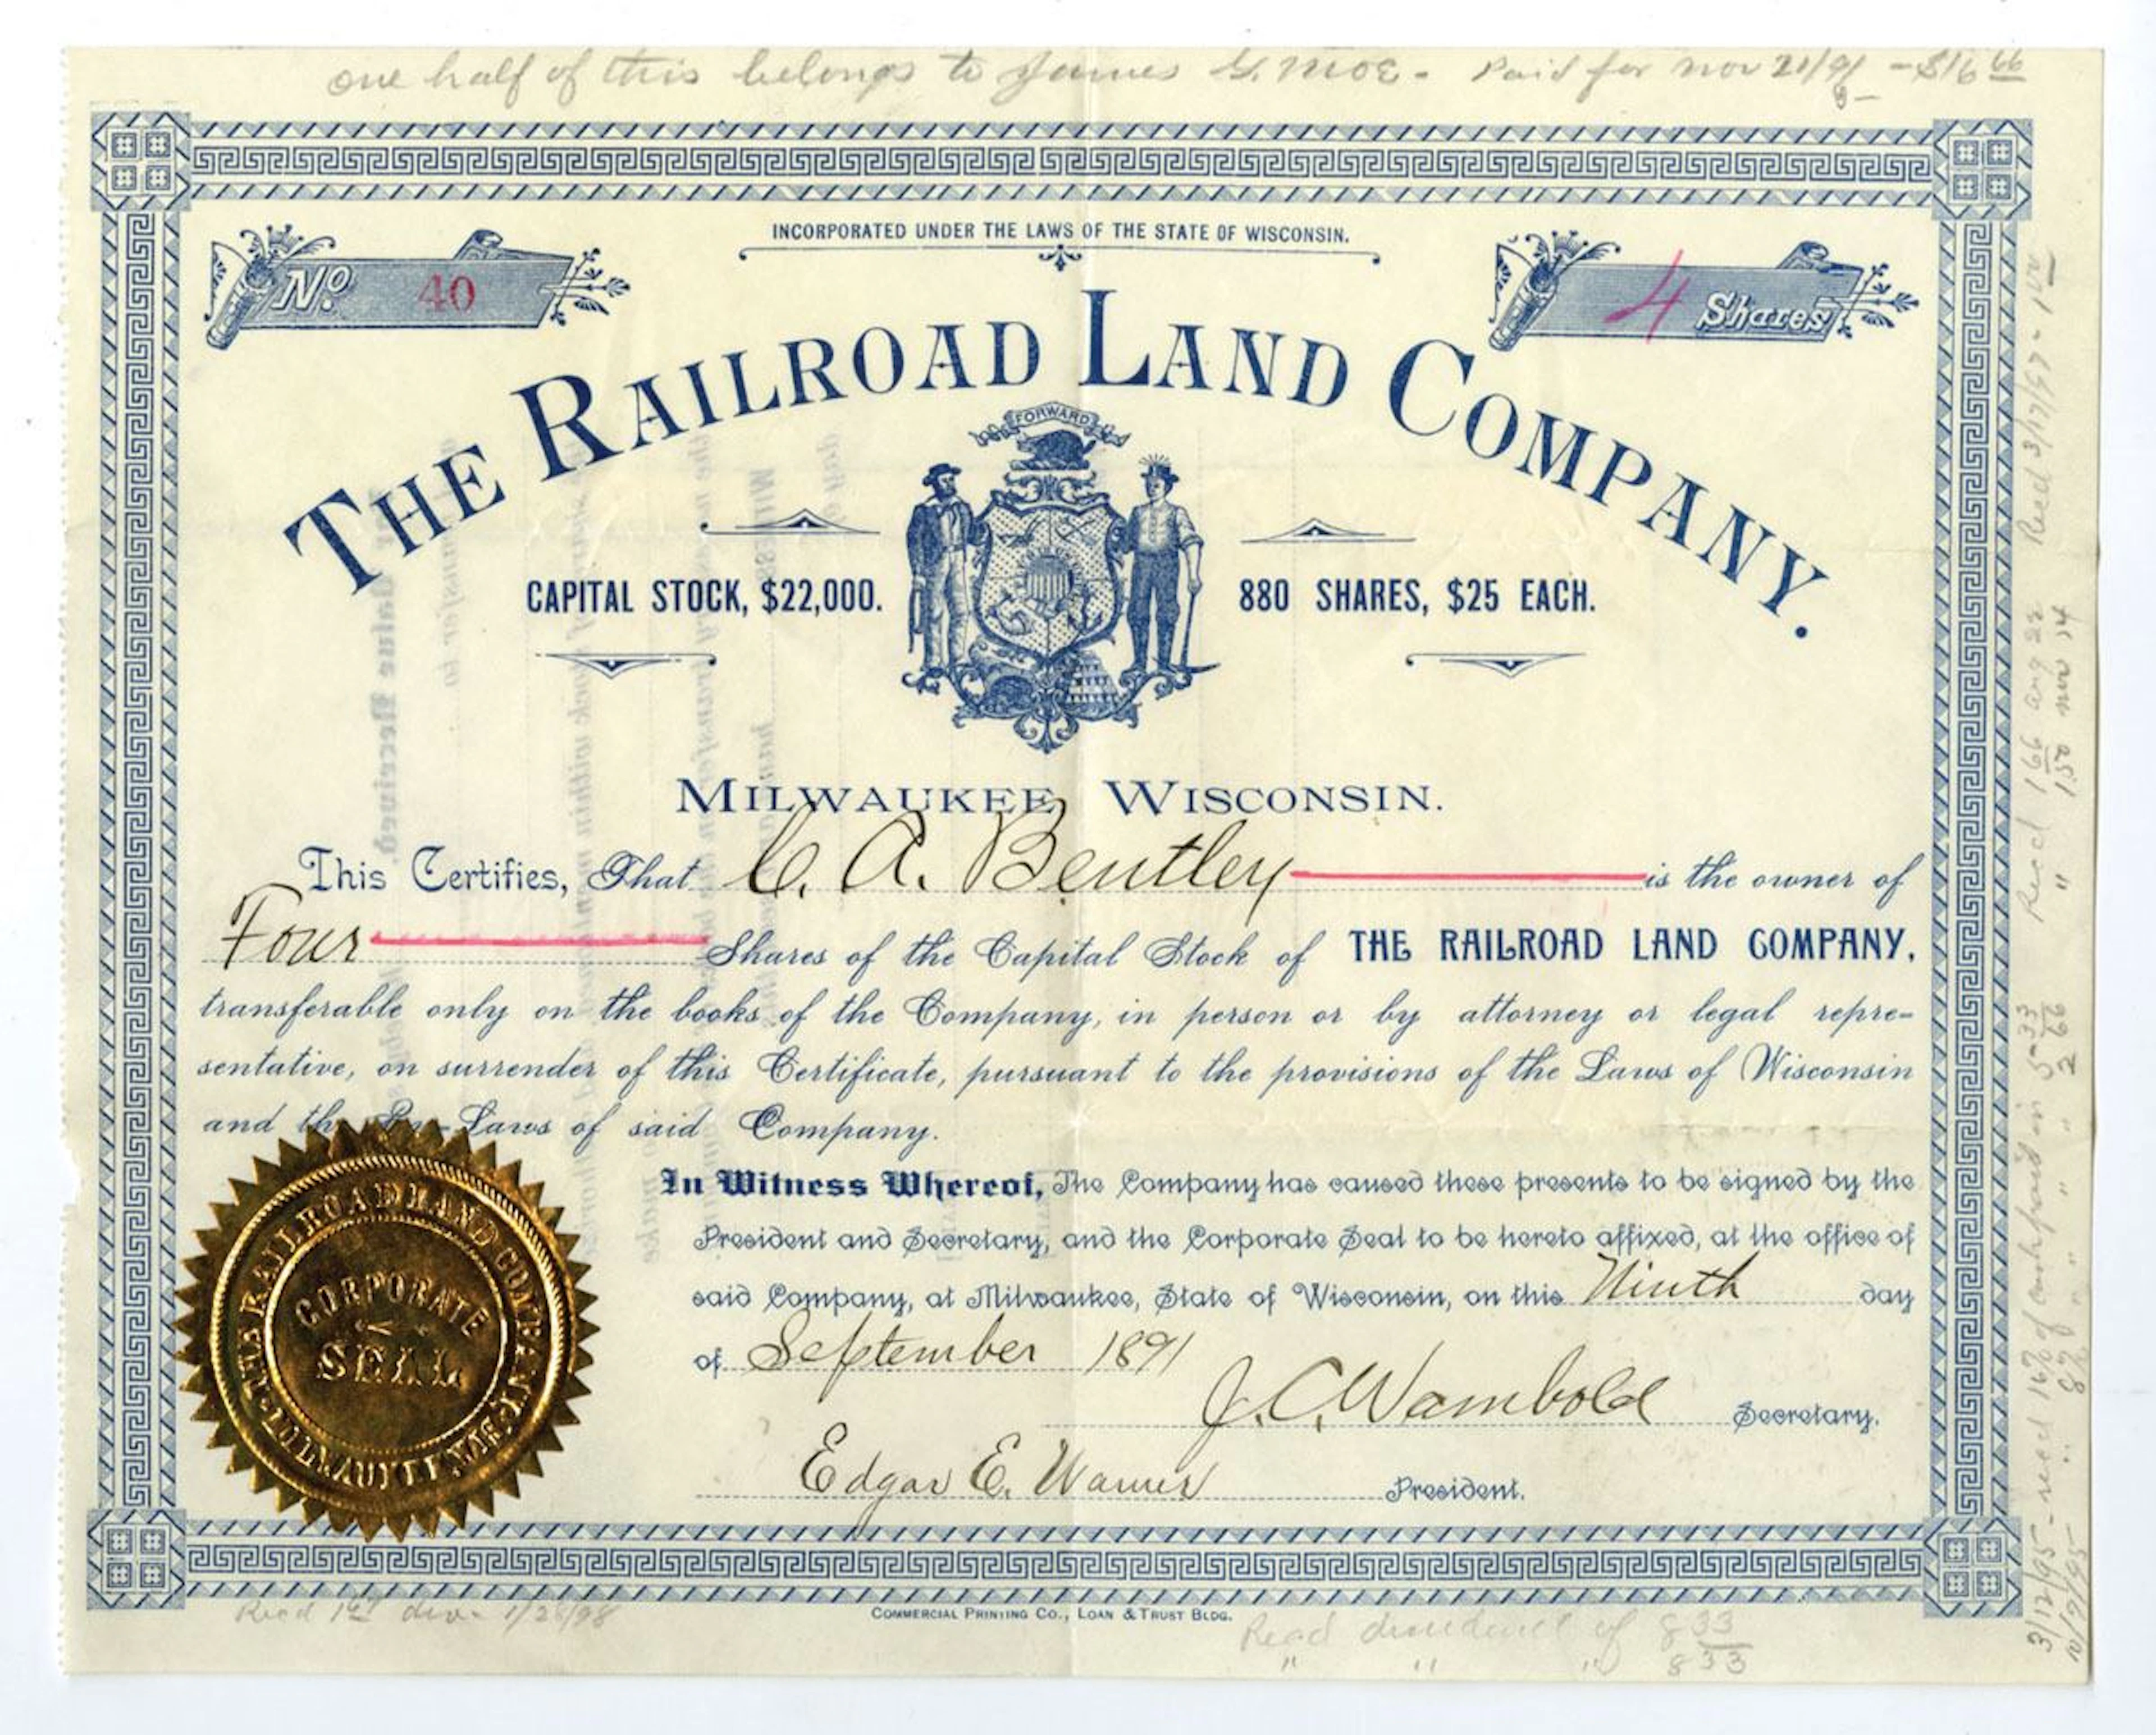 one half of this belongs to James G. Moe - Paid for Nov 21/91 - $16 66
INCORPORATED UNDER THE LAWS OF THE STATE OF WISCONSIN.
No. 40
4 Shares
THE RAILROAD LAND COMPANY.
FORWARD
CAPITAL STOCK, $22,000.
880 SHARES, $25 EACH.
MILWAUKEE, WISCONSIN.
This Certifies, That C. A. Bentley is the owner of
Four Shares of the Capital Stock of THE RAILROAD LAND COMPANY,
transferable only on the books of the Company, in person or by attorney or legal repre-
sentative, on surrender of this Certificate, pursuant to the provisions of the Laws of Wisconsin
and the By-Laws of said Company.
In Witness Whereof, The Company has caused these presents to be signed by the
President and Secretary, and the Corporate Seal to be hereto affixed, at the office of
said Company, at Milwaukee, State of Wisconsin, on this Ninth day
of September 1891
J. C. Wambold Secretary.
Edgar E. Warner President.
THE RAILROAD LAND COMPANY
CORPORATE
SEAL
MILWAUKEE, WIS.
COMMERCIAL PRINTING CO., LOAN & TRUST BLDG.
Recd div. 1/26/98
Recd dividend of 8 33
" " " 8 33
3/12/95 - recd 16% of cash paid in 5-33
10/9/95 " 8% " " " " 2 66
Recd 1 66 aug 22
" 1 50 nov 14
Recd 3/17/97 -